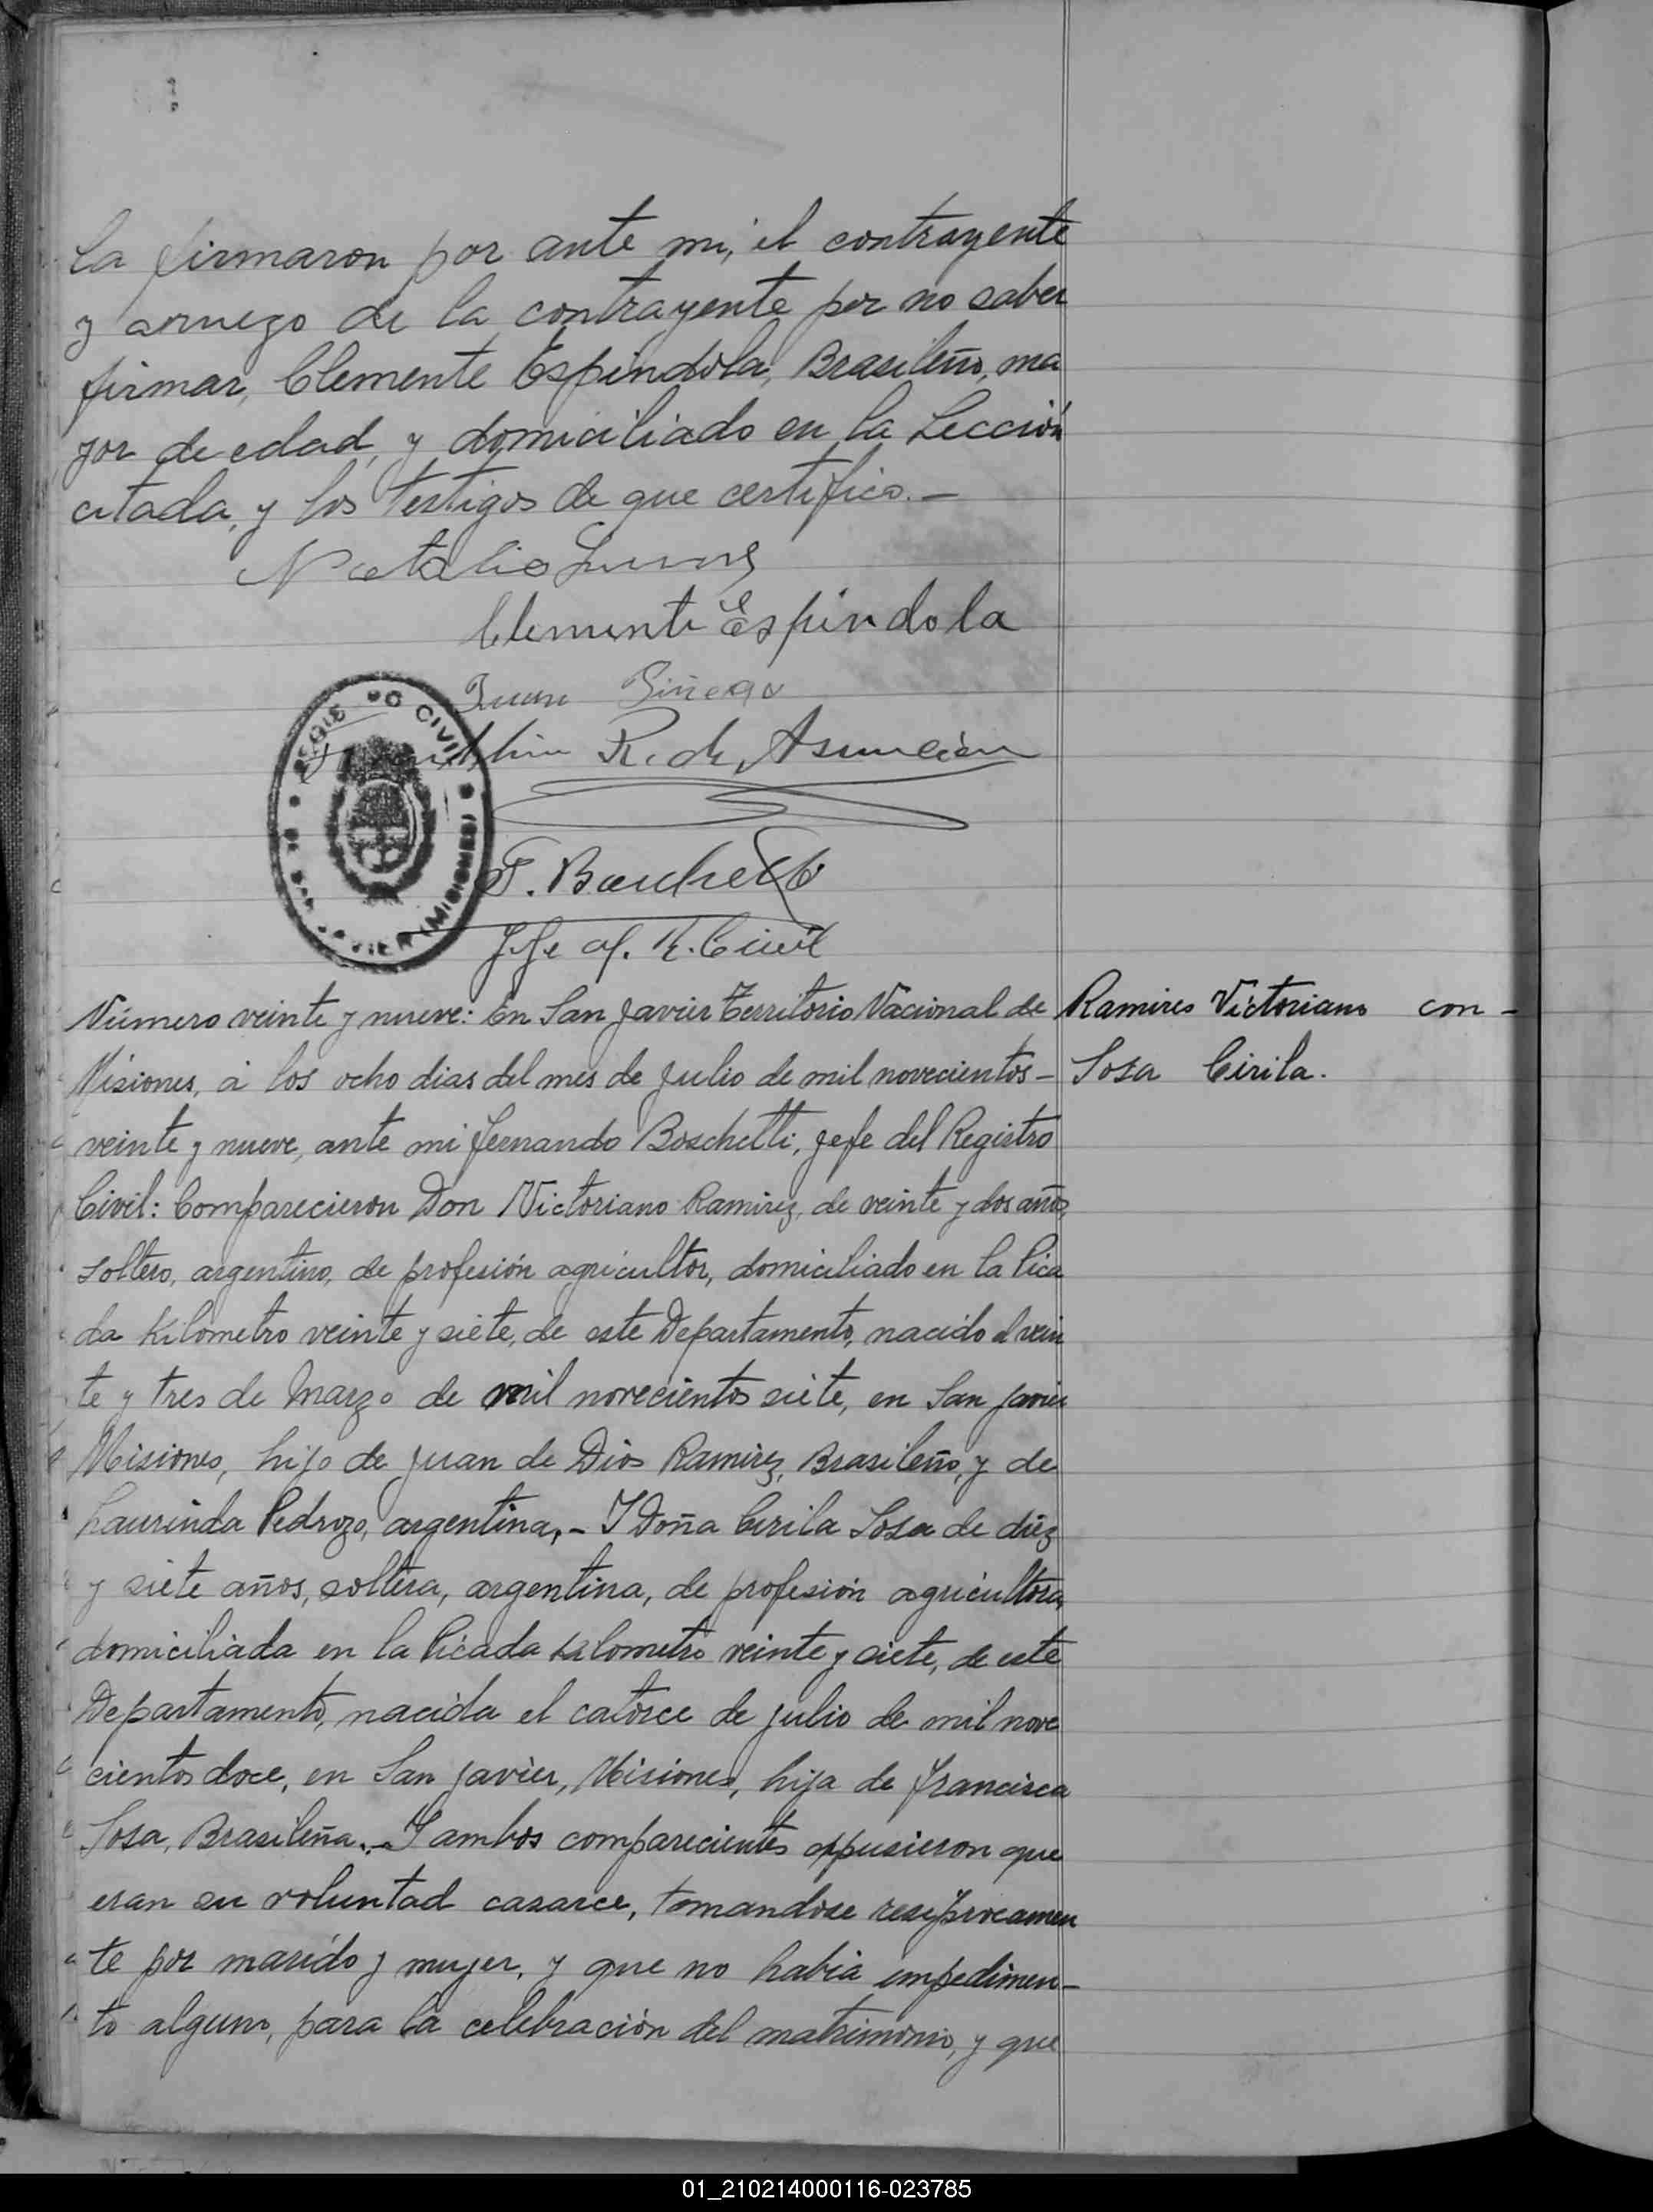 la firmaron por ante mi, el contrayente
y arruego de la contrayente por no saber
firmar, Clemente Espindola, Brasileño, ma
yor de edad, y domiciliado en la Sección
citada, y los testigos de que certifico.—
Natalio
Clemente Espindola
Juan
R. de Asunción
F. Boschetti
Jefe of. R. Civil
REGISTRO CIVIL DE SAN JAVIER (MISIONES)
Número veinte y nueve: En San Javier Territorio Nacional de
Ramires Victoriano con -
Misiones, á los ocho dias del mes de Julio de mil novecientos -
Sosa Cirila.
veinte y nueve, ante mi Fernando Boschetti, Jefe del Registro
Civil: Comparecieron Don Victoriano Ramirez, de veinte y dos años,
soltero, argentino, de profesión agricultor, domiciliado en la Pica
da Kilometro veinte y siete, de este Departamento, nacido el vein
te y tres de Marzo de mil novecientos siete, en San Javier
Misiones, hijo de Juan de Dios Ramirez, Brasileño, y de
Laurinda Pedrozo, argentina,.- I Doña Cirila Sosa de diez
y siete años, soltera, argentina, de profesión agricultora,
domiciliada en la Picada kilometro veinte y siete, de este
Departamento, nacida el catorce de Julio de mil nove
cientos doce, en San Javier, Misiones, hija de Francisca
Sosa, Brasileña.- I ambos comparecientes expusieron que
eran su voluntad casarce, tomandose resiprocamen
te por marido y mujer, y que no habia impedimen-
to alguno, para la celebración del matrimonio, y que
01_210214000116-023785